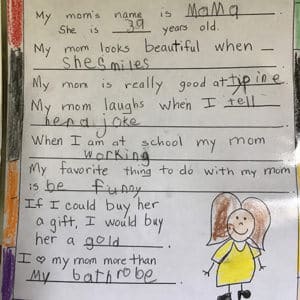 My mom's name is MaMa
She is 39 years old.
My mom looks beautiful when
shesmiles
My mom is really good at typine
My mom laughs when I tell
hera joke
When I am at school my mom
working
My favorite thing to do with my mom
is be funny
If I could buy her
a gift, I would buy
her a gold.
I ♡ my mom more than
My bathrobe